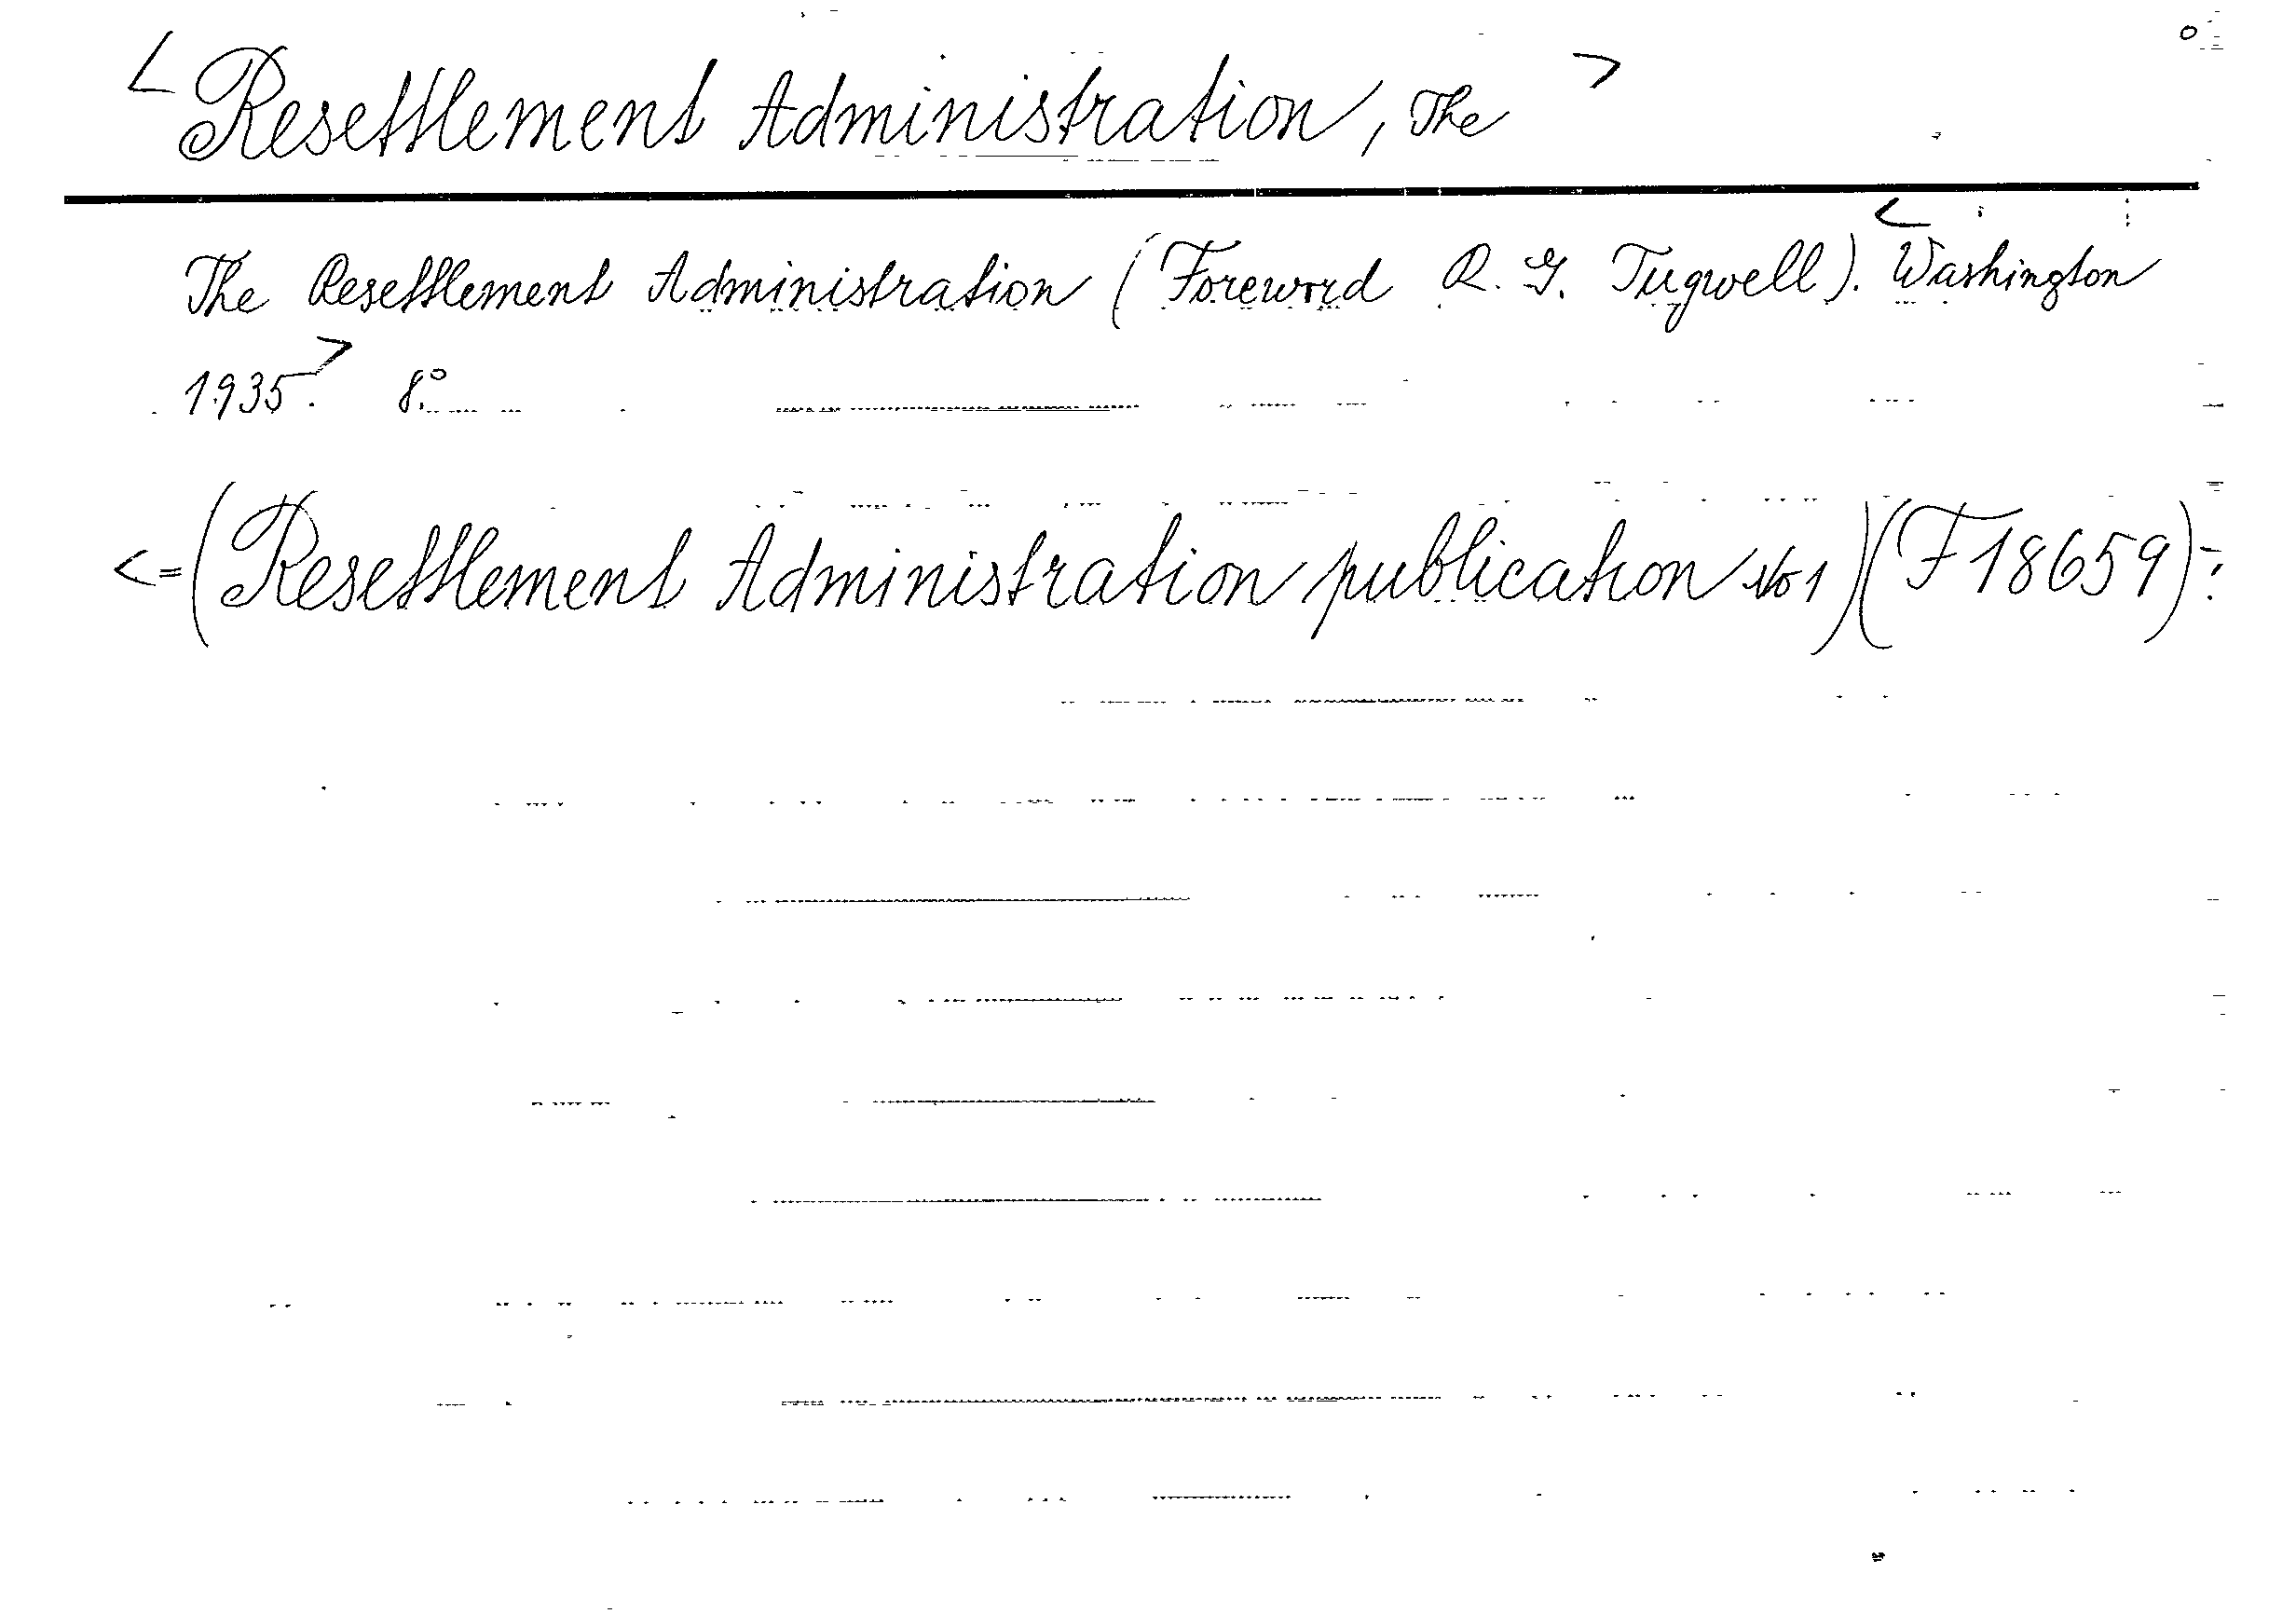 <Resettlement Administration, The>
The Resettlement Administration (Foreword R. G. Tugwell). <Washington
1935.> 8°.
<=(Resettlement Administration publication No 1)(F18659)=>